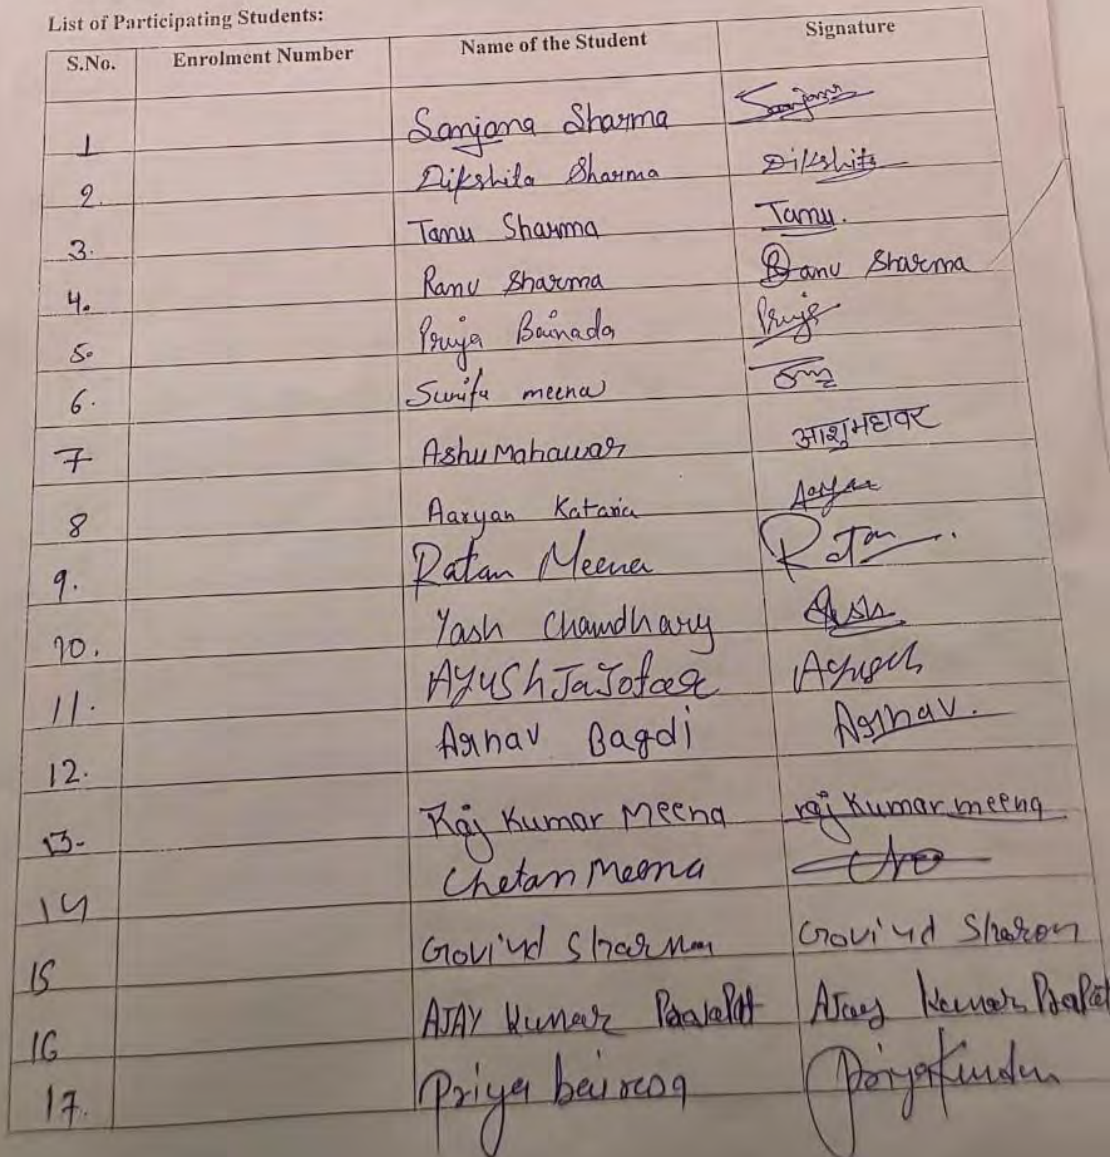 List of Participating Students:
S.No. Enrolment Number Name of the Student Signature
1 Sanjana Sharma Sanjana
2. Dikshita Sharma Dikshita
3. Tanu Sharma Tanu.
4. Ranu Sharma Ranu Sharma
5. Priya Bainada Priya
6. Sunita meena
7 Ashu Mahawar आशु महावर
8 Aaryan Kataria Aaryan
9. Ratan Meena Ratan
10. Yash Chaudhary Yash
11. AYUSh JaJotar Ayush
12. Arnav Bagdi Arnav.
13. Raj Kumar Meena raj Kumar meena
14 Chetan Meena
15 Govind Sharma Govind
16 AJAY Kumar Ajay Kumar
17. Priya Priya